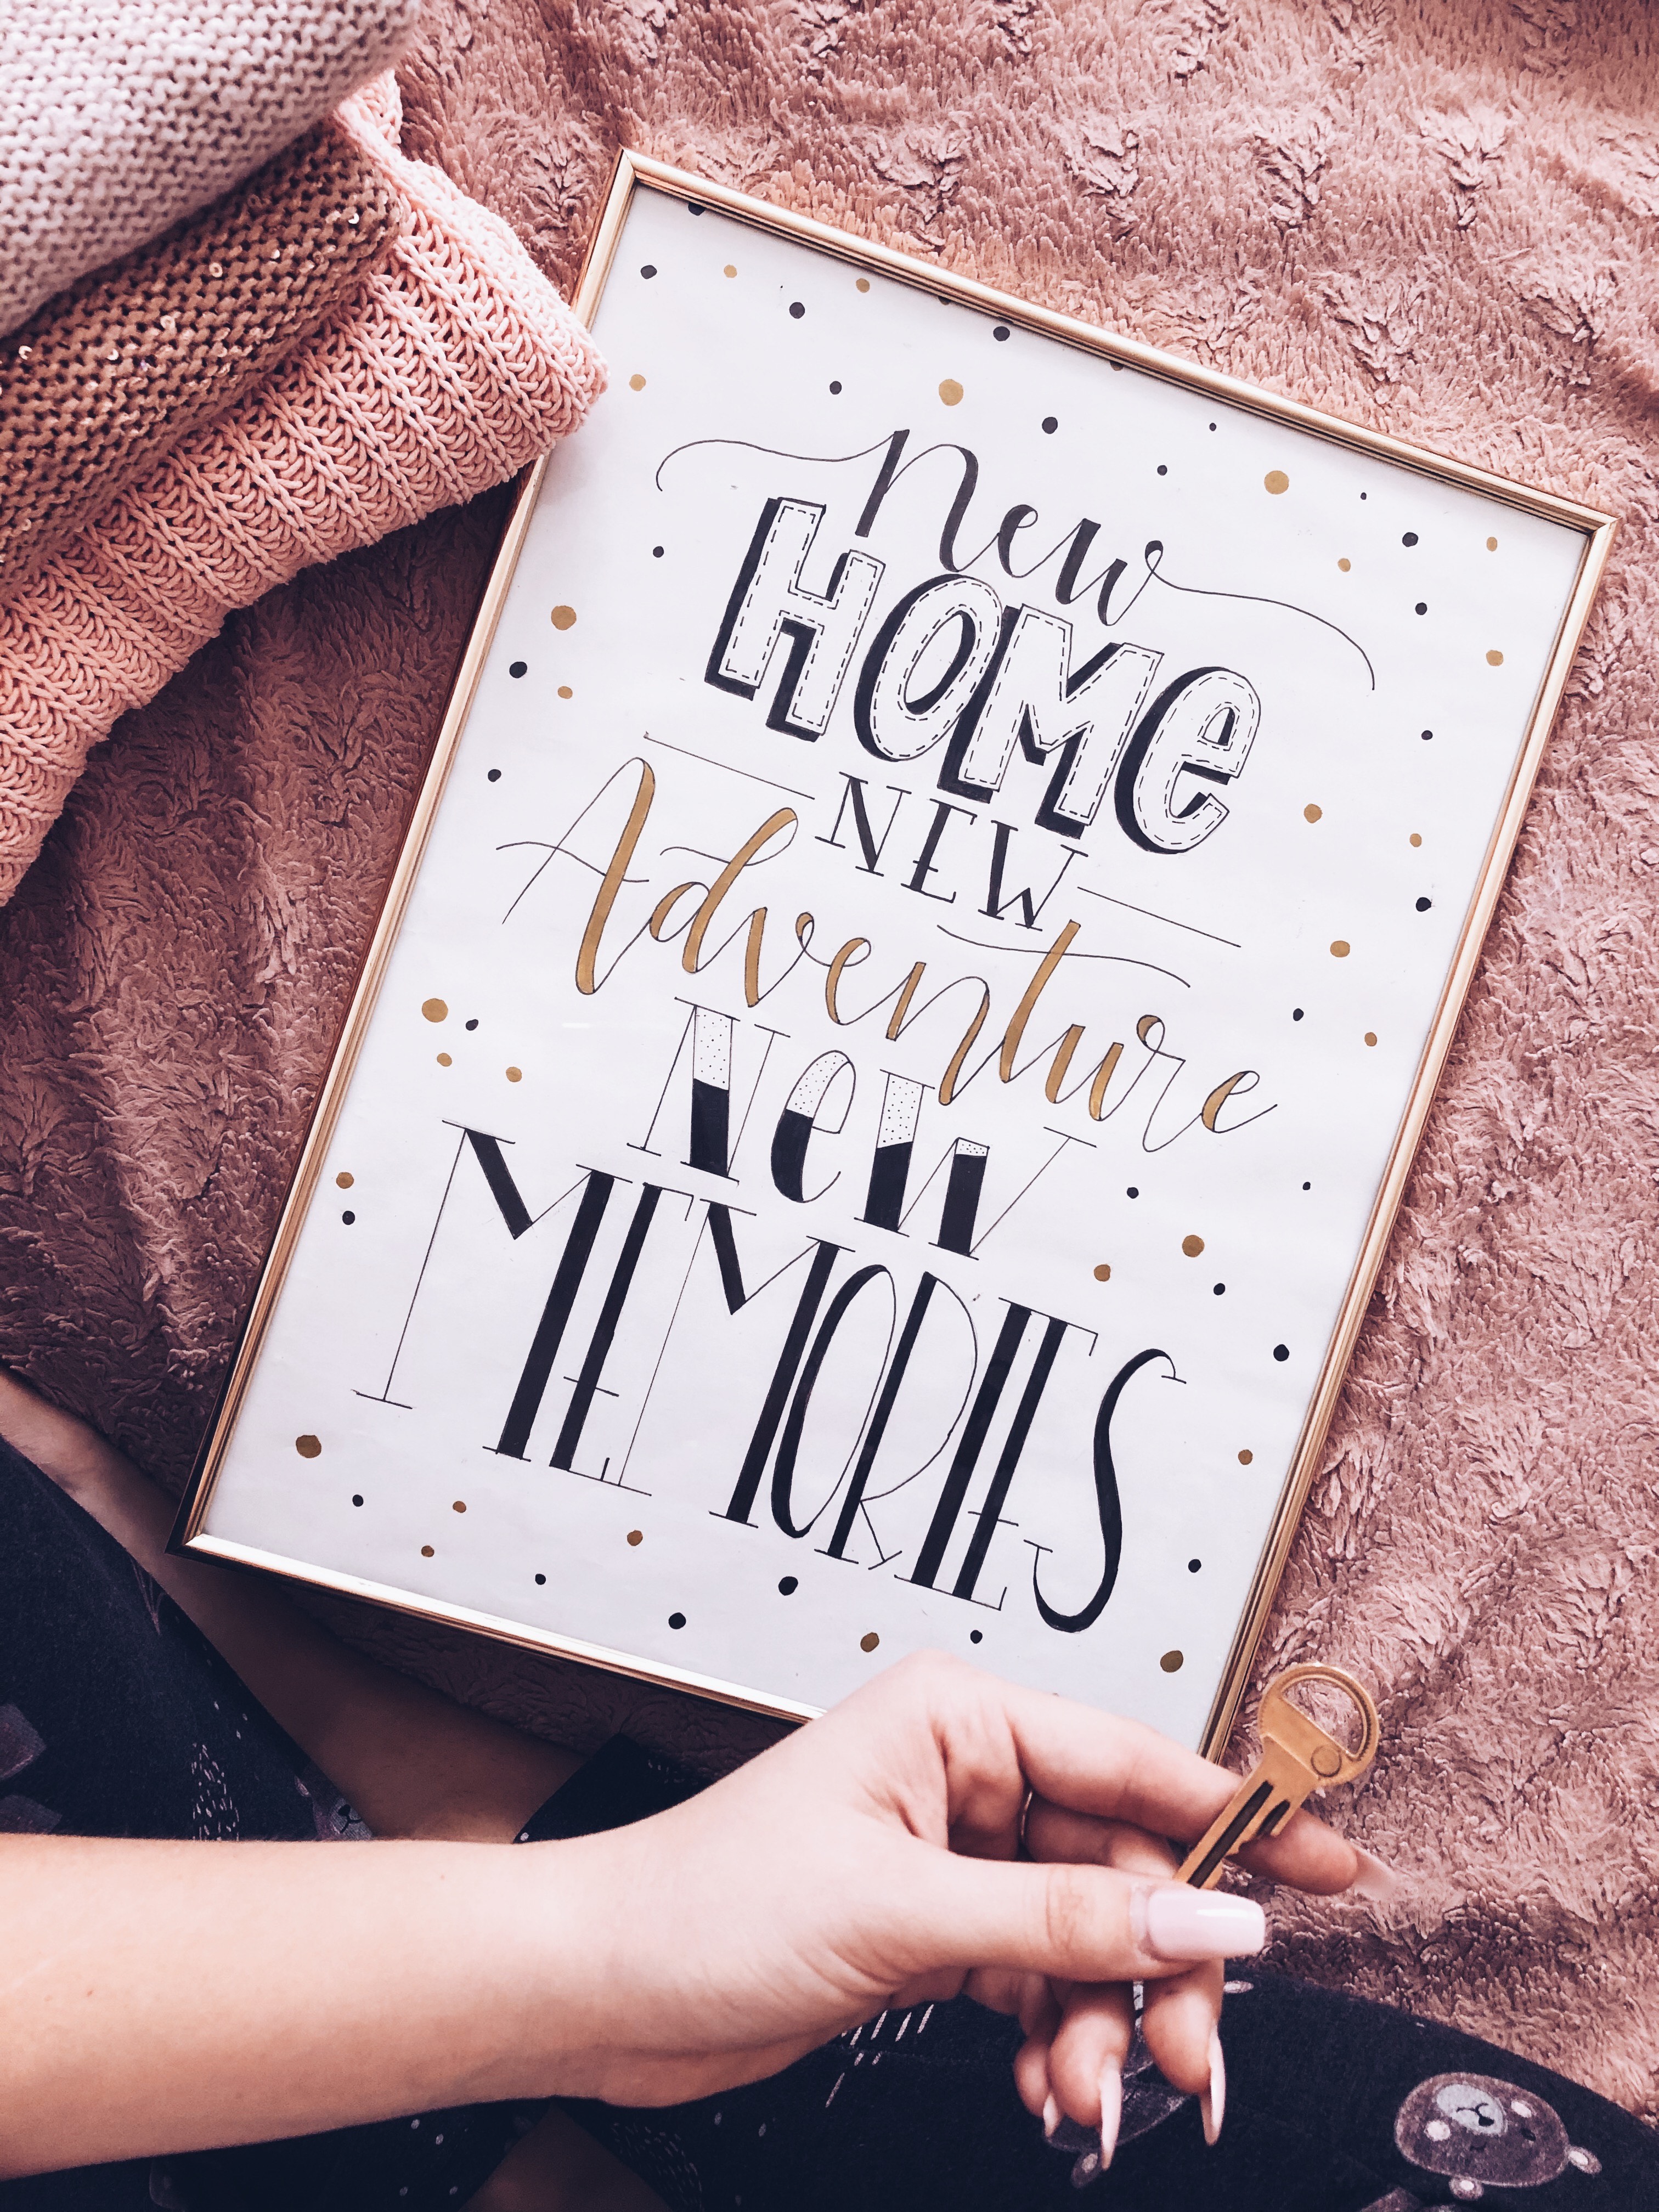 New
HOMe
NEW
Adventure
New
MEMORIES